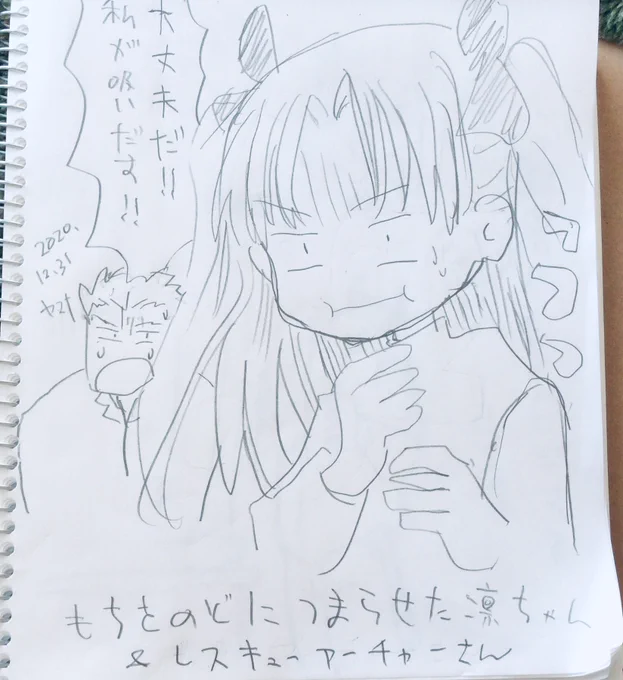 大丈夫だ!!
私が吸いだす!!
2020.
12.31
もちをのどにつまらせた凛ちゃん
& レスキューアーチャーさん